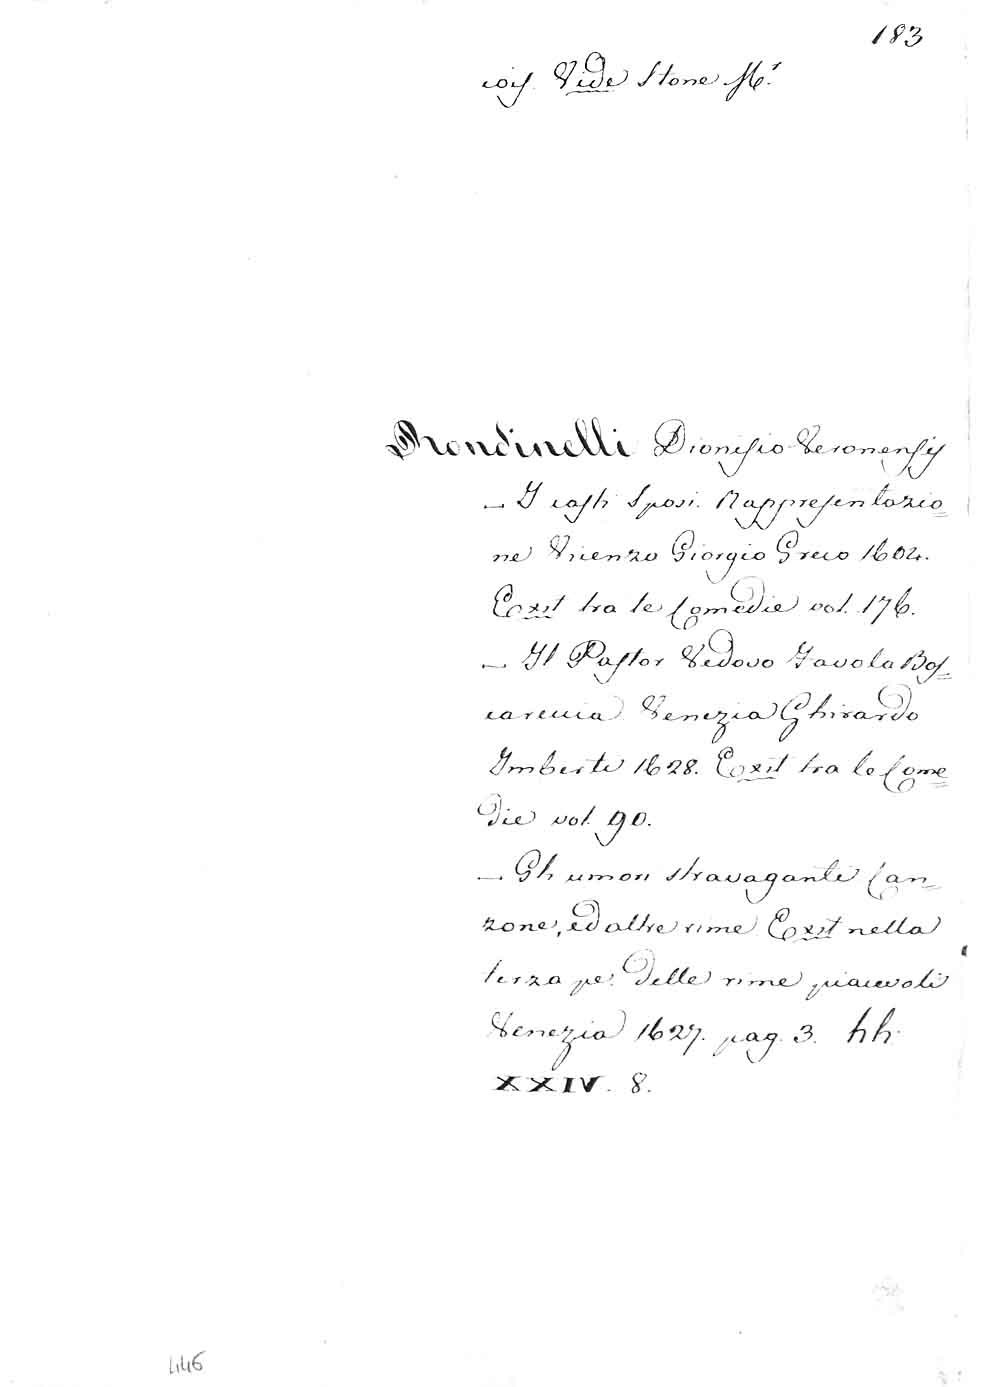 183
cois. Vide Stone Mr.
Rondinelli Dionisio Veronensis
— I casti Sposi. Rappresentazio=
ne Vicenza Giorgio Greco 1604.
Exit tra le Comedie vol. 176.
— Il Pastor Vedovo Favola Bos=
careccia Venezia Ghirardo
Imberti 1628. Exit tra le Come=
die vol. 90.
— Gli umori stravaganti Can=
zone, ed altre rime Exit nella
terza pe. delle rime piacevoli
Venezia 1627. pag. 3. hh.
XXIV. 8.
446